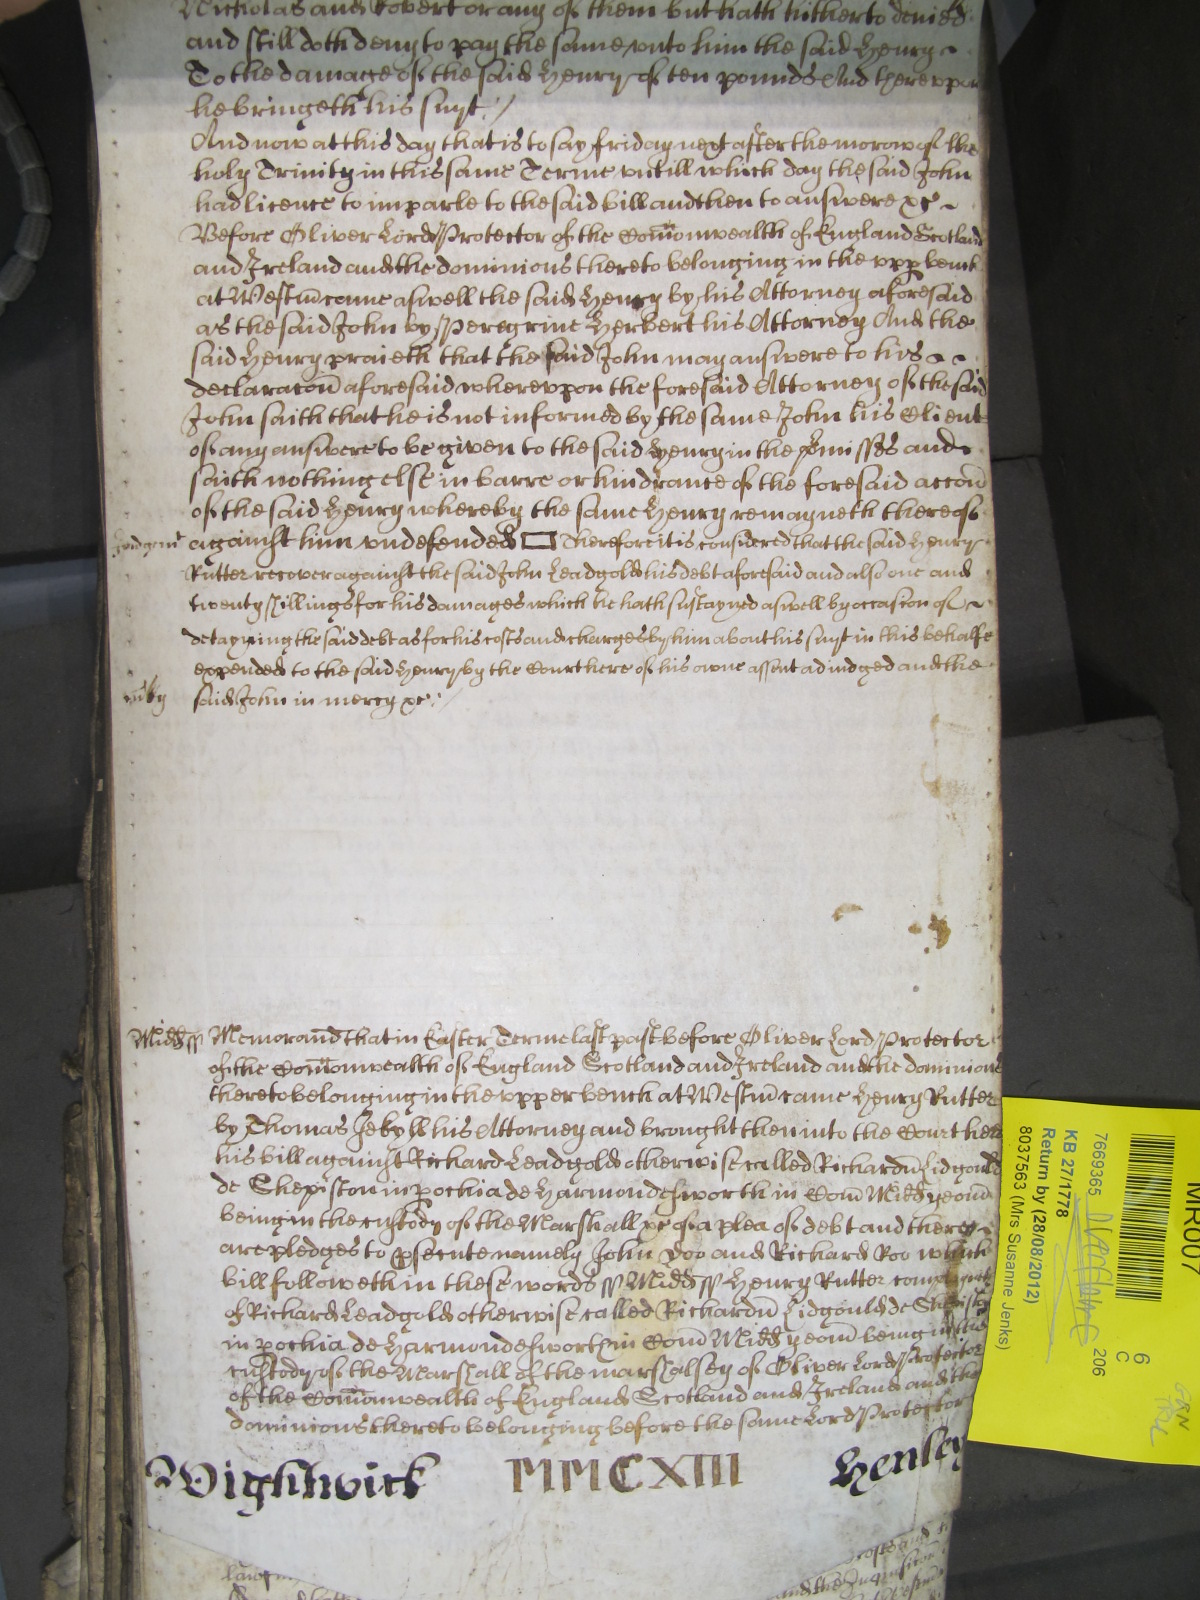 Nicholas and Robert or any of them but hath hitherto denied
and still doth deny to pay the same vnto him the said Henry
To the damage of the said Henry of ten pounds And therevpon
he bringeth his suyt
And now at this day that is to say friday next after the morow of the
holy Trinity in this same Terme vntill which day the said John
had licence to imparle to the said bill and then to answere &c
Before Oliver Lord Protector of the Com̄onwealth of England Scotland
and Ireland and the dominions thereto belonging in the vpp bench
at Westm̄ came aswell the said Henry by his Attorney aforesaid
as the said John by Peregrine Herbert his Attorney And the
said Henry praieth that the said John may answere to his
declaracon̄ aforesaid wherevpon the foresaid Attorney of the said
John saith that he is not informed by the same John his Client
of any answere to be given to the said Henry in the p̄misses and
saith nothing else in barre or hindrance of the foresaid accon̄
of the said Henry whereby the same Henry remayneth thereof
Judgem̄t against him vndefended Therefore it is considered that the said Henry
Rutter recover against the said John Leadgold his debt aforesaid and also one and
twenty shillings for his damages which he hath sustayned aswell by occasion of
detayning the said debt as for his costs and charges by him about his suyt in this behalfe
expended to the said Henry by the Court here of his owne assent adiudged and the
m̄cy said John in mercy &c
Midd̄ ss Memorand̄ that in Easter Terme last past before Oliver Lord Protector
of the Com̄onwealth of England Scotland and Ireland and the dominions
thereto belonging in the vpper bench at Westm̄ came Henry Rutter
by Thomas Jekyll his Attorney and brought then into the Court here
his bill against Richard Leadgold otherwise called Richardū Lidgould
de Shepiston in pochia de Harmondesworth in Com̄ Midd̄ yeom̄
being in the custody of the Marshall &c of a plea of debt and there
are pledges to psecute namely John Doo and Richard Roo which
bill followeth in these words ss Midd̄ ss Henry Rutter complayneth
of Richard Leadgold otherwise called Richardū Lidgould de Shepiston
in pochia de Harmondesworth in Com̄ Midd̄ yeom̄ being in the
custody of the Marshall of the marshalsey of Oliver Lord Protector
of the Com̄onwealth of England Scotland and Ireland and the
dominions thereto belonging before the same Lord Protector
Wightwick MMCXIII Henley
MR007
6
C
206
7669365
KB 27/1778
Return by (28/08/2012)
8037563 (Mrs Susanne Jenks)